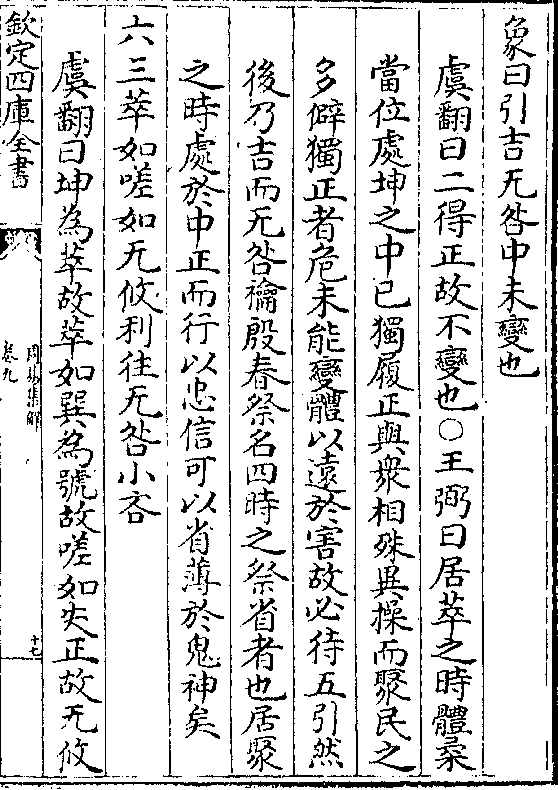 象曰引吉无咎中未變也
虞翻曰二得正故不變也○王弼曰居萃之時體柔
當位處坤之中已獨履正與衆相殊異操而聚民之
多僻獨正者危未能變體以遠於害故必待五引然
後乃吉而无咎禴殷春祭名四時之祭省者也居聚
之時處於中正而行以忠信可以省薄於鬼神矣
六三萃如嗟如无攸利往无咎小吝
虞翻曰坤為萃故萃如巽為號故嗟如失正故无攸
欽定四庫全書
周易集解
卷九
十七